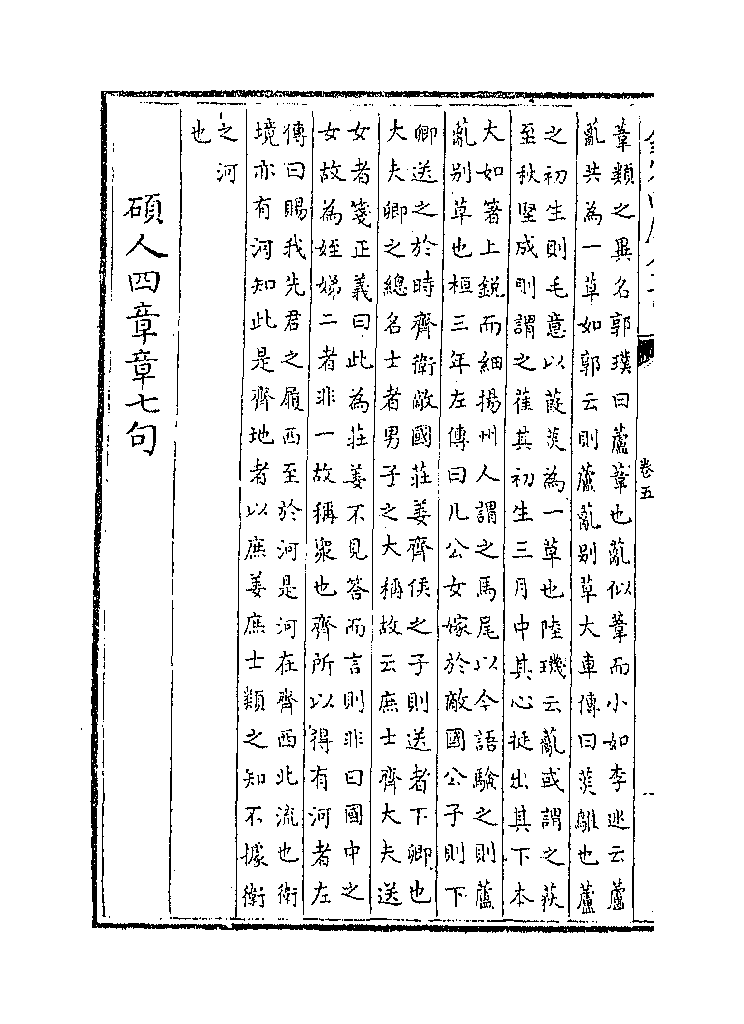 葦類之異名郭璞曰蘆葦也薍似葦而小如李巡云蘆
薍共為一草如郭云則蘆薍别草大車傳曰菼鵻也蘆
之初生則毛意以葭菼為一草也陸璣云薍或謂之荻
至秋堅成則謂之萑其初生三月中其心挺出其下本
大如箸上銳而細揚州人謂之馬尾以今語驗之則蘆
薍别草也桓三年左傳曰凡公女嫁於敵國公子則下
卿送之於時齊衛敵國莊姜齊侯之子則送者下卿也
大夫卿之總名士者男子之大稱故云庶士齊大夫送
女者箋正義曰此為莊姜不見答而言則非曰國中之
女故為姪娣二者非一故稱衆也齊所以得有河者左
傳曰賜我先君之履西至於河是河在齊西北流也衛
境亦有河知此是齊地者以庶姜庶士類之知不據衛
之河
也
碩人四章章七句
卷五